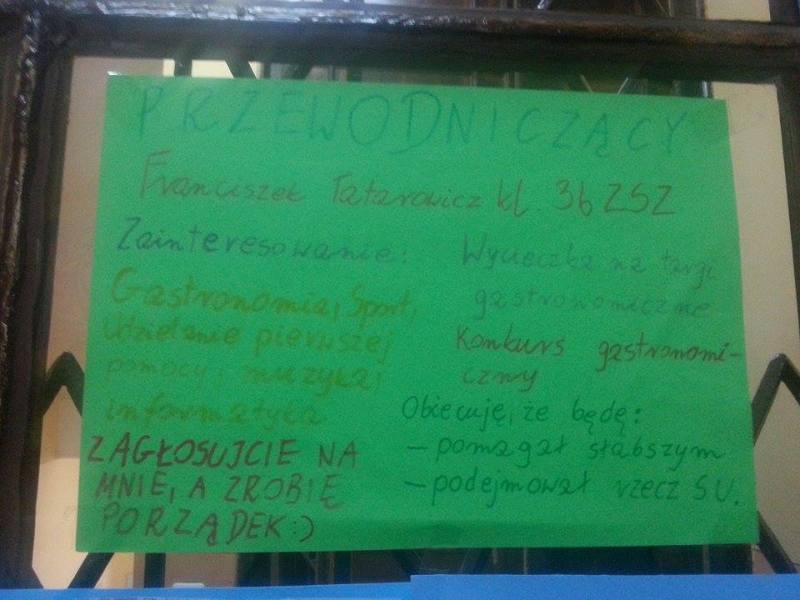 PRZEWODNICZĄCY
Franciszek Tatarowicz kl. 3b ZSZ
Zainteresowanie:
Gastronomia, Sport,
Udzielanie pierwszej
pomocy, muzyka,
informatyka
ZAGŁOSUJCIE NA
MNIE, A ZROBIĘ
PORZĄDEK:)
Wycieczka na targi
gastronomiczne
Konkurs gastronomi-
czny
Obiecuję, że będę:
– pomagał słabszym
– podejmował rzecz SU.